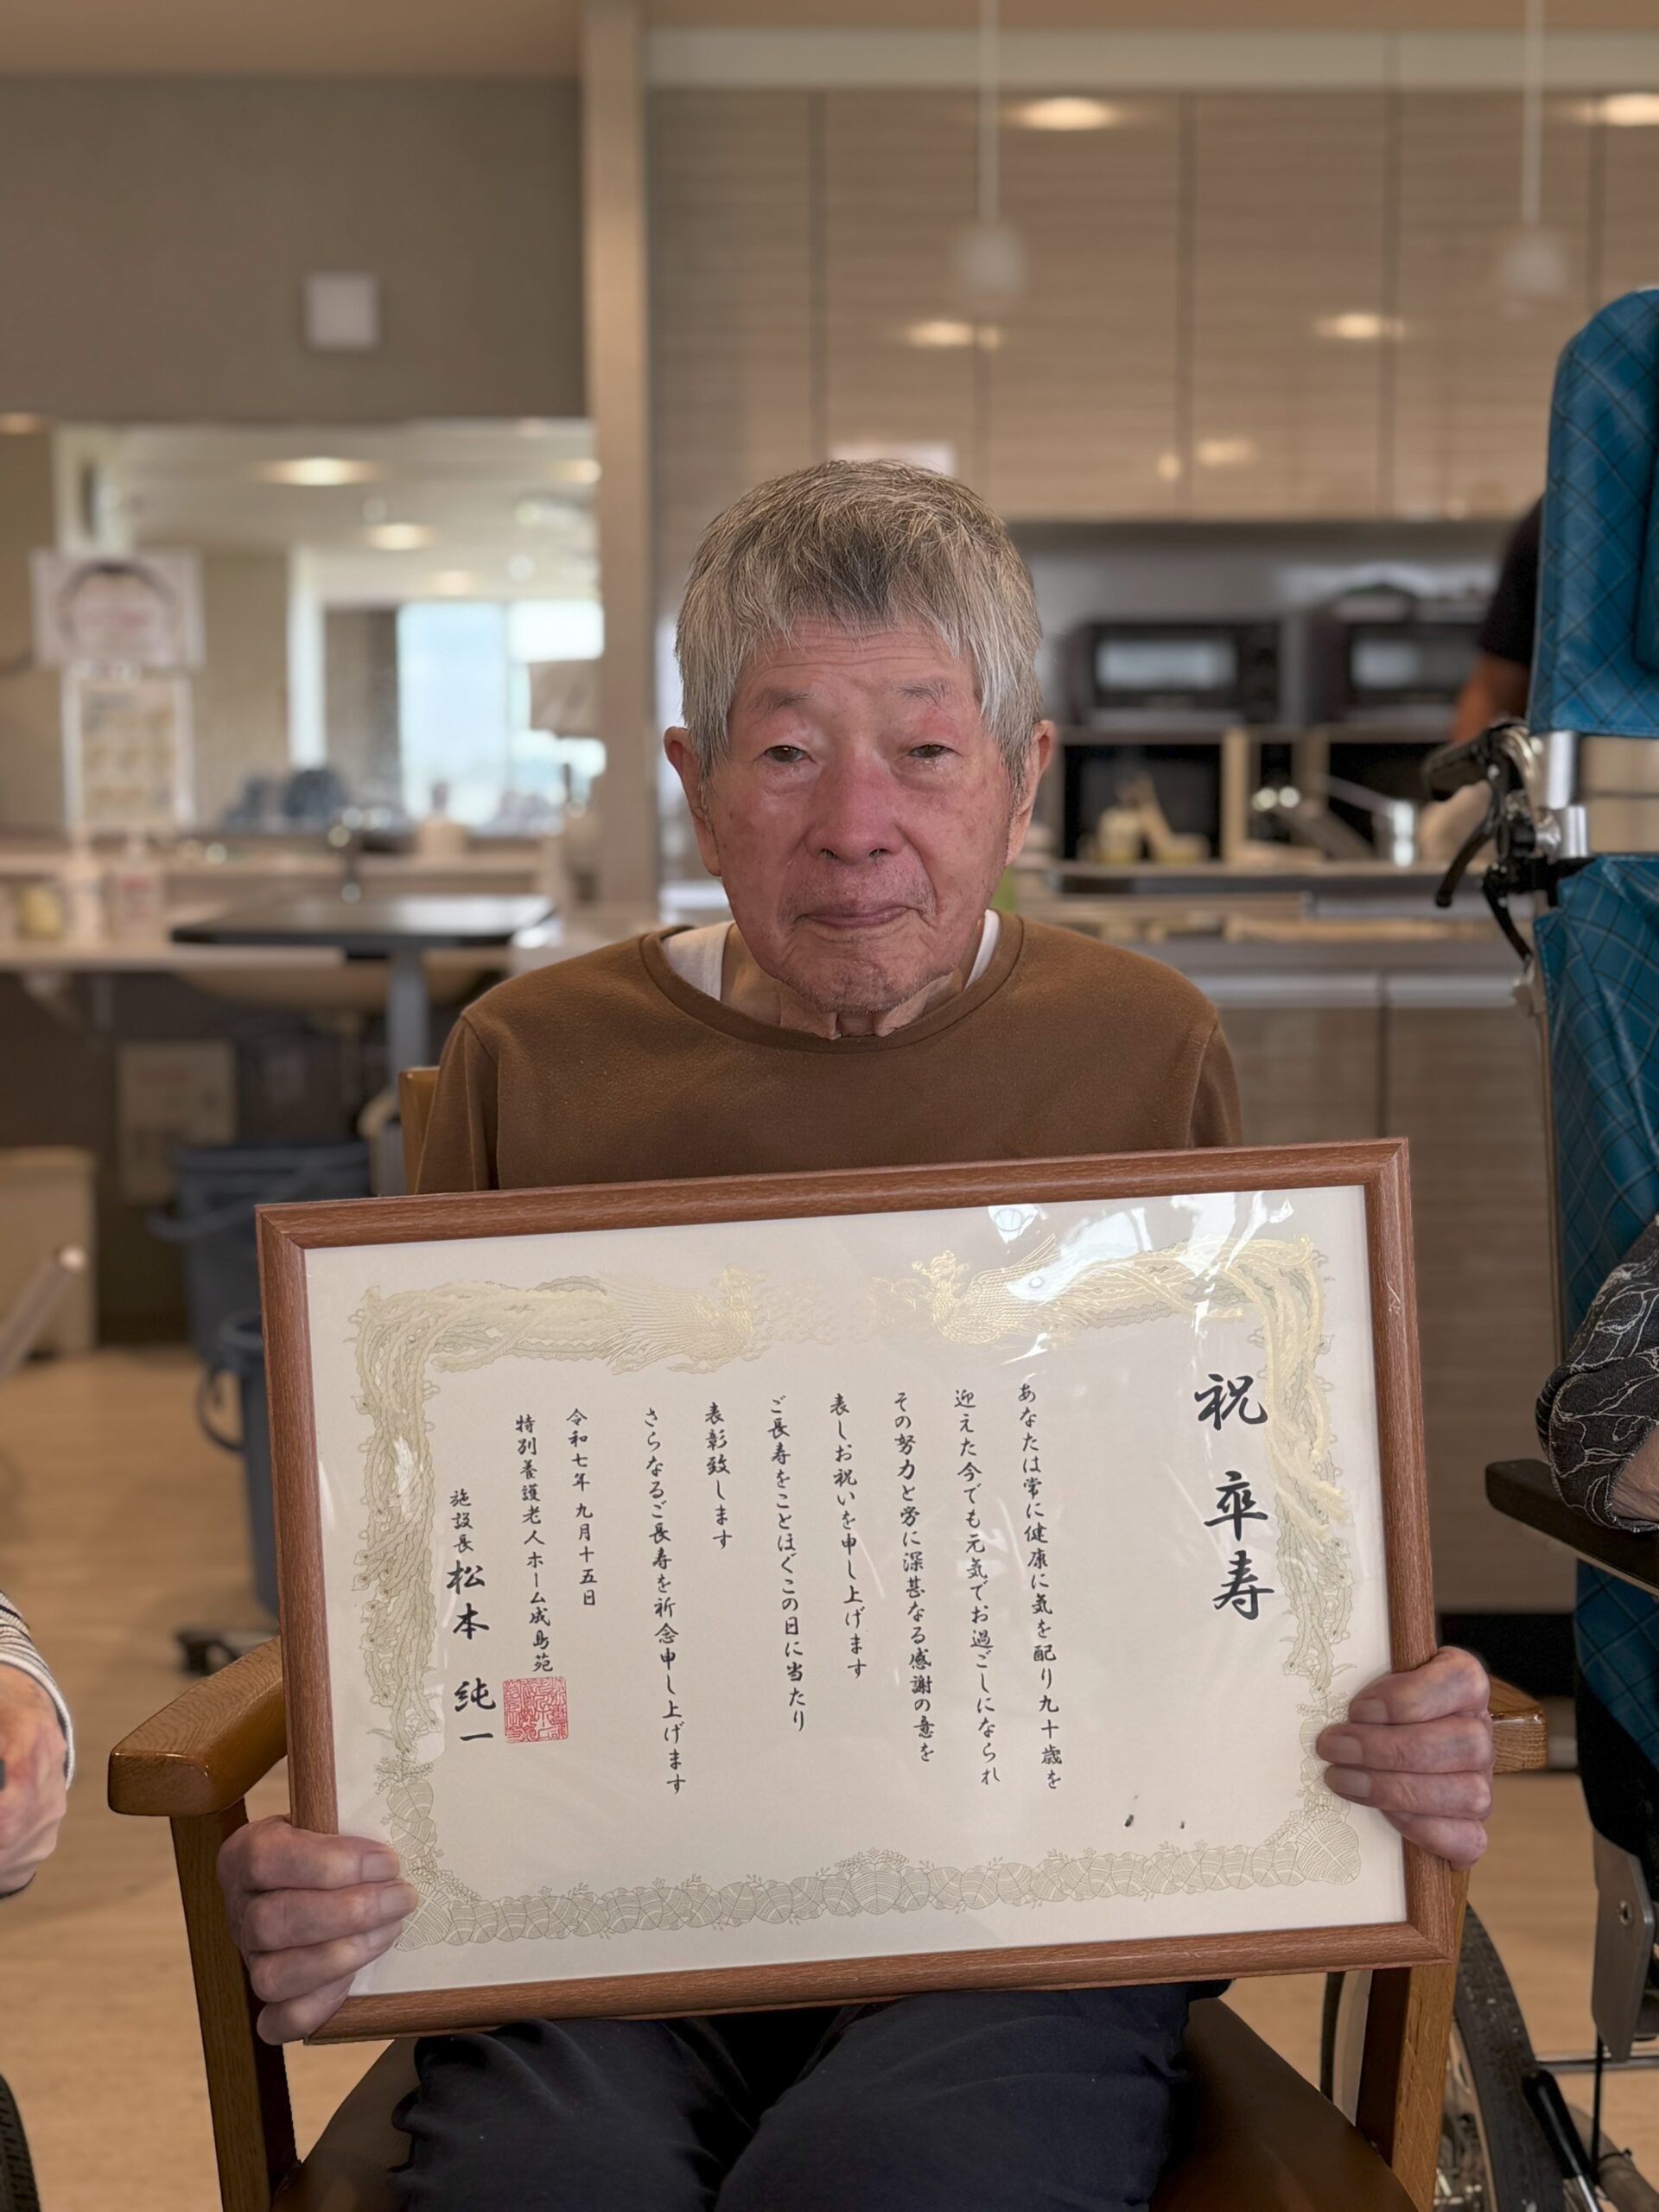 祝 卒寿
あなたは常に健康に気を配り九十歳を
迎えた今でも元気でお過ごしになられ
その努力と労に深甚なる感謝の意を
表しお祝いを申し上げます
ご長寿をことほぐこの日に当たり
表彰致します
さらなるご長寿を祈念申し上げます
令和七年 九月十五日
特別養護老人ホーム成島苑
施設長 松本 純一